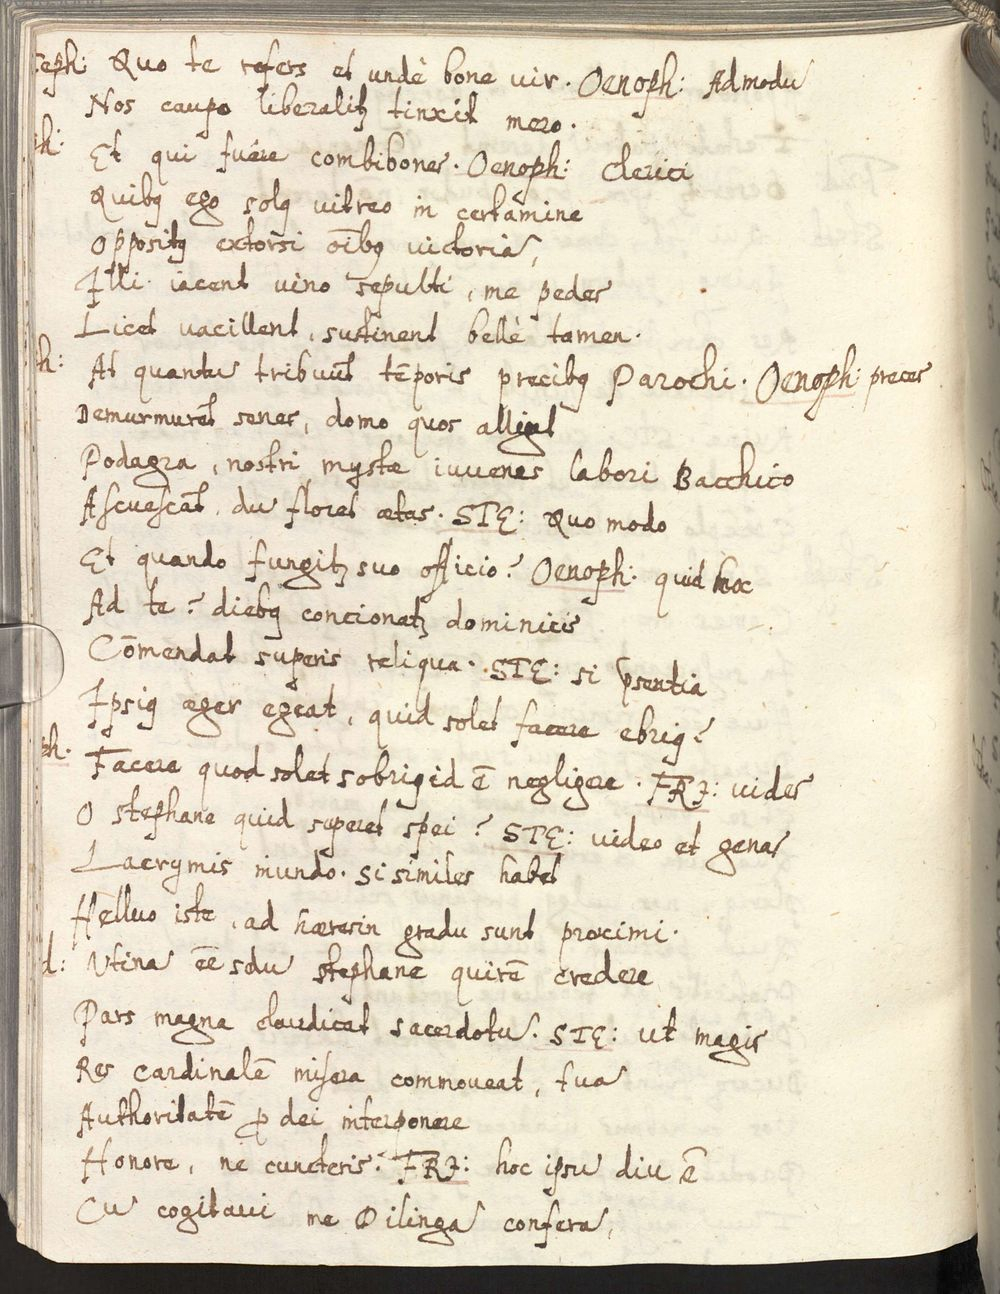 Steph: Quo te refers et undè bone uir. Oenoph: Admodū
Nos caupo liberalitꝫ tinxit mero.
ph: Et qui fuêre combibones. Oenoph: Clerici
Quibꝰ ego solꝰ uitreo in certamine
Oppositꝰ extorsi oībꝰ uictoriā,
Illi iacent uino sepulti, me pedes
Licet uacillent, sustinent bellè tamen.
ph: At quantū tribuūt tēporis precibꝰ Parochi. Oenoph: preces
Demurmurēt senes, domo quos alligat
Podagra, nostri mystæ iuuenes labori Bacchico
Ascuescāt, dū floret ætas. STE: Quo modo
Et quando fungitꝫ suo officio? Oenoph: quid hoc
Ad te? diebꝰ concionatꝫ dominicis
Cōmendat superis reliqua. STE: si p̄sentia
Ipsiꝰ æger egeat, quid solet facere ebriꝰ?
ph. Facere quod solet sobriꝰ id ē negligere. FRI: uides
O stephane quid superet spei? STE: uideo et genas
Lacrymis mundo. si similes habet
Helluo iste, ad hæresin gradū sunt proximi.
d: Vtinā eē sdū stephane quirē credere
Pars magna claudicat sacerdotū. STE: ut magis
Res cardinalē misera commoueat, tuā
Authoritatē ꝑ dei interponere
Honorē, ne cuncteris. FRI: hoc ipsū diu ē
Cū cogitaui me Dilingā conferā,